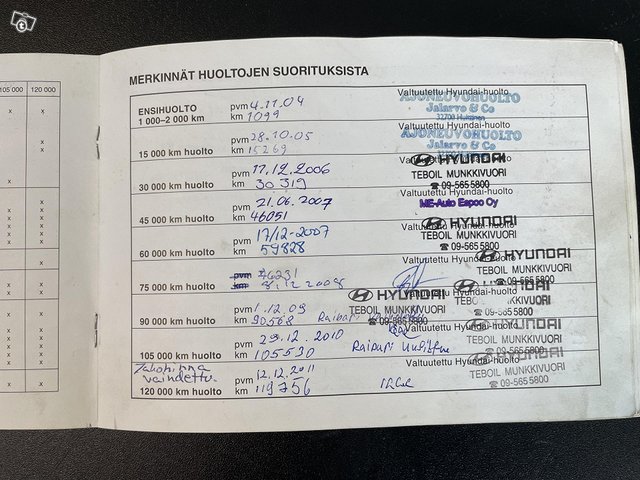 105 000 120 000
MERKINNÄT HUOLTOJEN SUORITUKSISTA
ENSIHUOLTO pvm 4.11.04 Valtuutettu Hyundai-huolto
1 000–2 000 km km 1099
AJONEUVOHUOLTO
Jalarvo & Co
pvm 28.10.05 Valtuutettu Hyundai-huolto
15 000 km huolto km 15269
AJONEUVOHUOLTO
Jalarvo & Co
pvm 17.12.2006 Valtuutettu Hyundai-huolto
30 000 km huolto km 30319
HYUNDAI
TEBOIL MUNKKIVUORI
☎ 09-565 5800
pvm 21.06.2007 Valtuutettu Hyundai-huolto
45 000 km huolto km 46051
ME-Auto Espoo Oy
pvm 17/12-2007 Valtuutettu Hyundai-huolto
60 000 km huolto km 59828
HYUNDAI
TEBOIL MUNKKIVUORI
☎ 09-565 5800
pvm
75 000 km huolto km 8.12.2008
HYUNDAI
TEBOIL MUNKKIVUORI
☎ 09-565 5800
pvm 1.12.09 Valtuutettu Hyundai-huolto
90 000 km huolto km 90568
HYUNDAI
TEBOIL MUNKKIVUORI
☎ 09-565 5800
pvm 29.12.2010 Valtuutettu Hyundai-huolto
105 000 km huolto km 105530
HYUNDAI
TEBOIL MUNKKIVUORI
☎ 09-565 5800
Jakohihna
vaihdettu.
pvm 12.12.2011 Valtuutettu Hyundai-huolto
120 000 km huolto km 119756
TEBOIL MUNKKIVUORI
☎ 09-565 5800